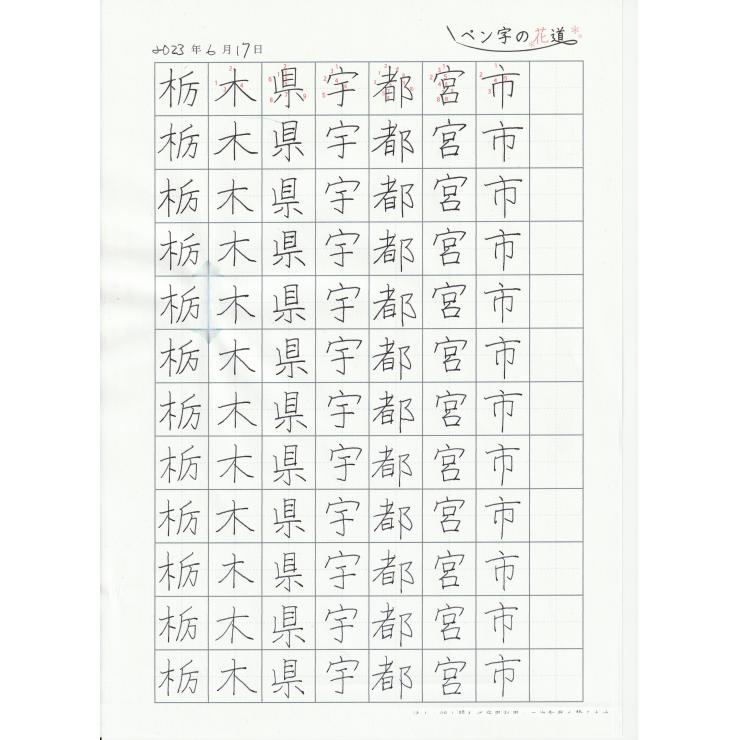 ペン字の花道
2023年6月17日
栃木県宇都宮市
栃木県宇都宮市
栃木県宇都宮市
栃木県宇都宮市
栃木県宇都宮市
栃木県宇都宮市
栃木県宇都宮市
栃木県宇都宮市
栃木県宇都宮市
栃木県宇都宮市
栃木県宇都宮市
栃木県宇都宮市